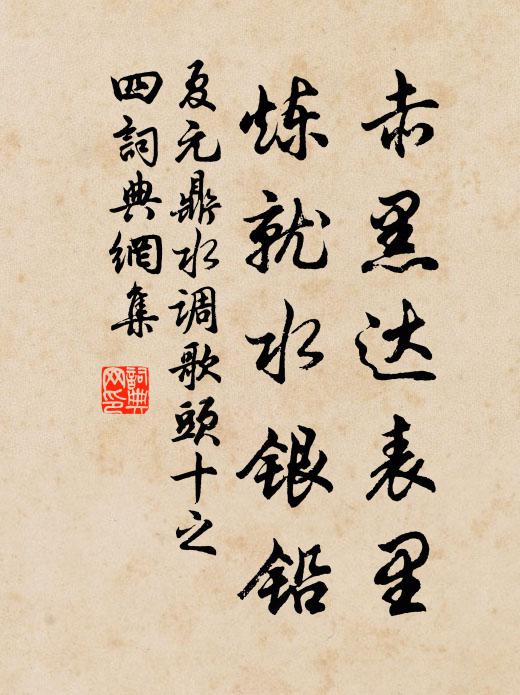 赤黑达表里
炼就水银铅
夏元鼎水调歌头十之
四詞典網集
詞典
网印